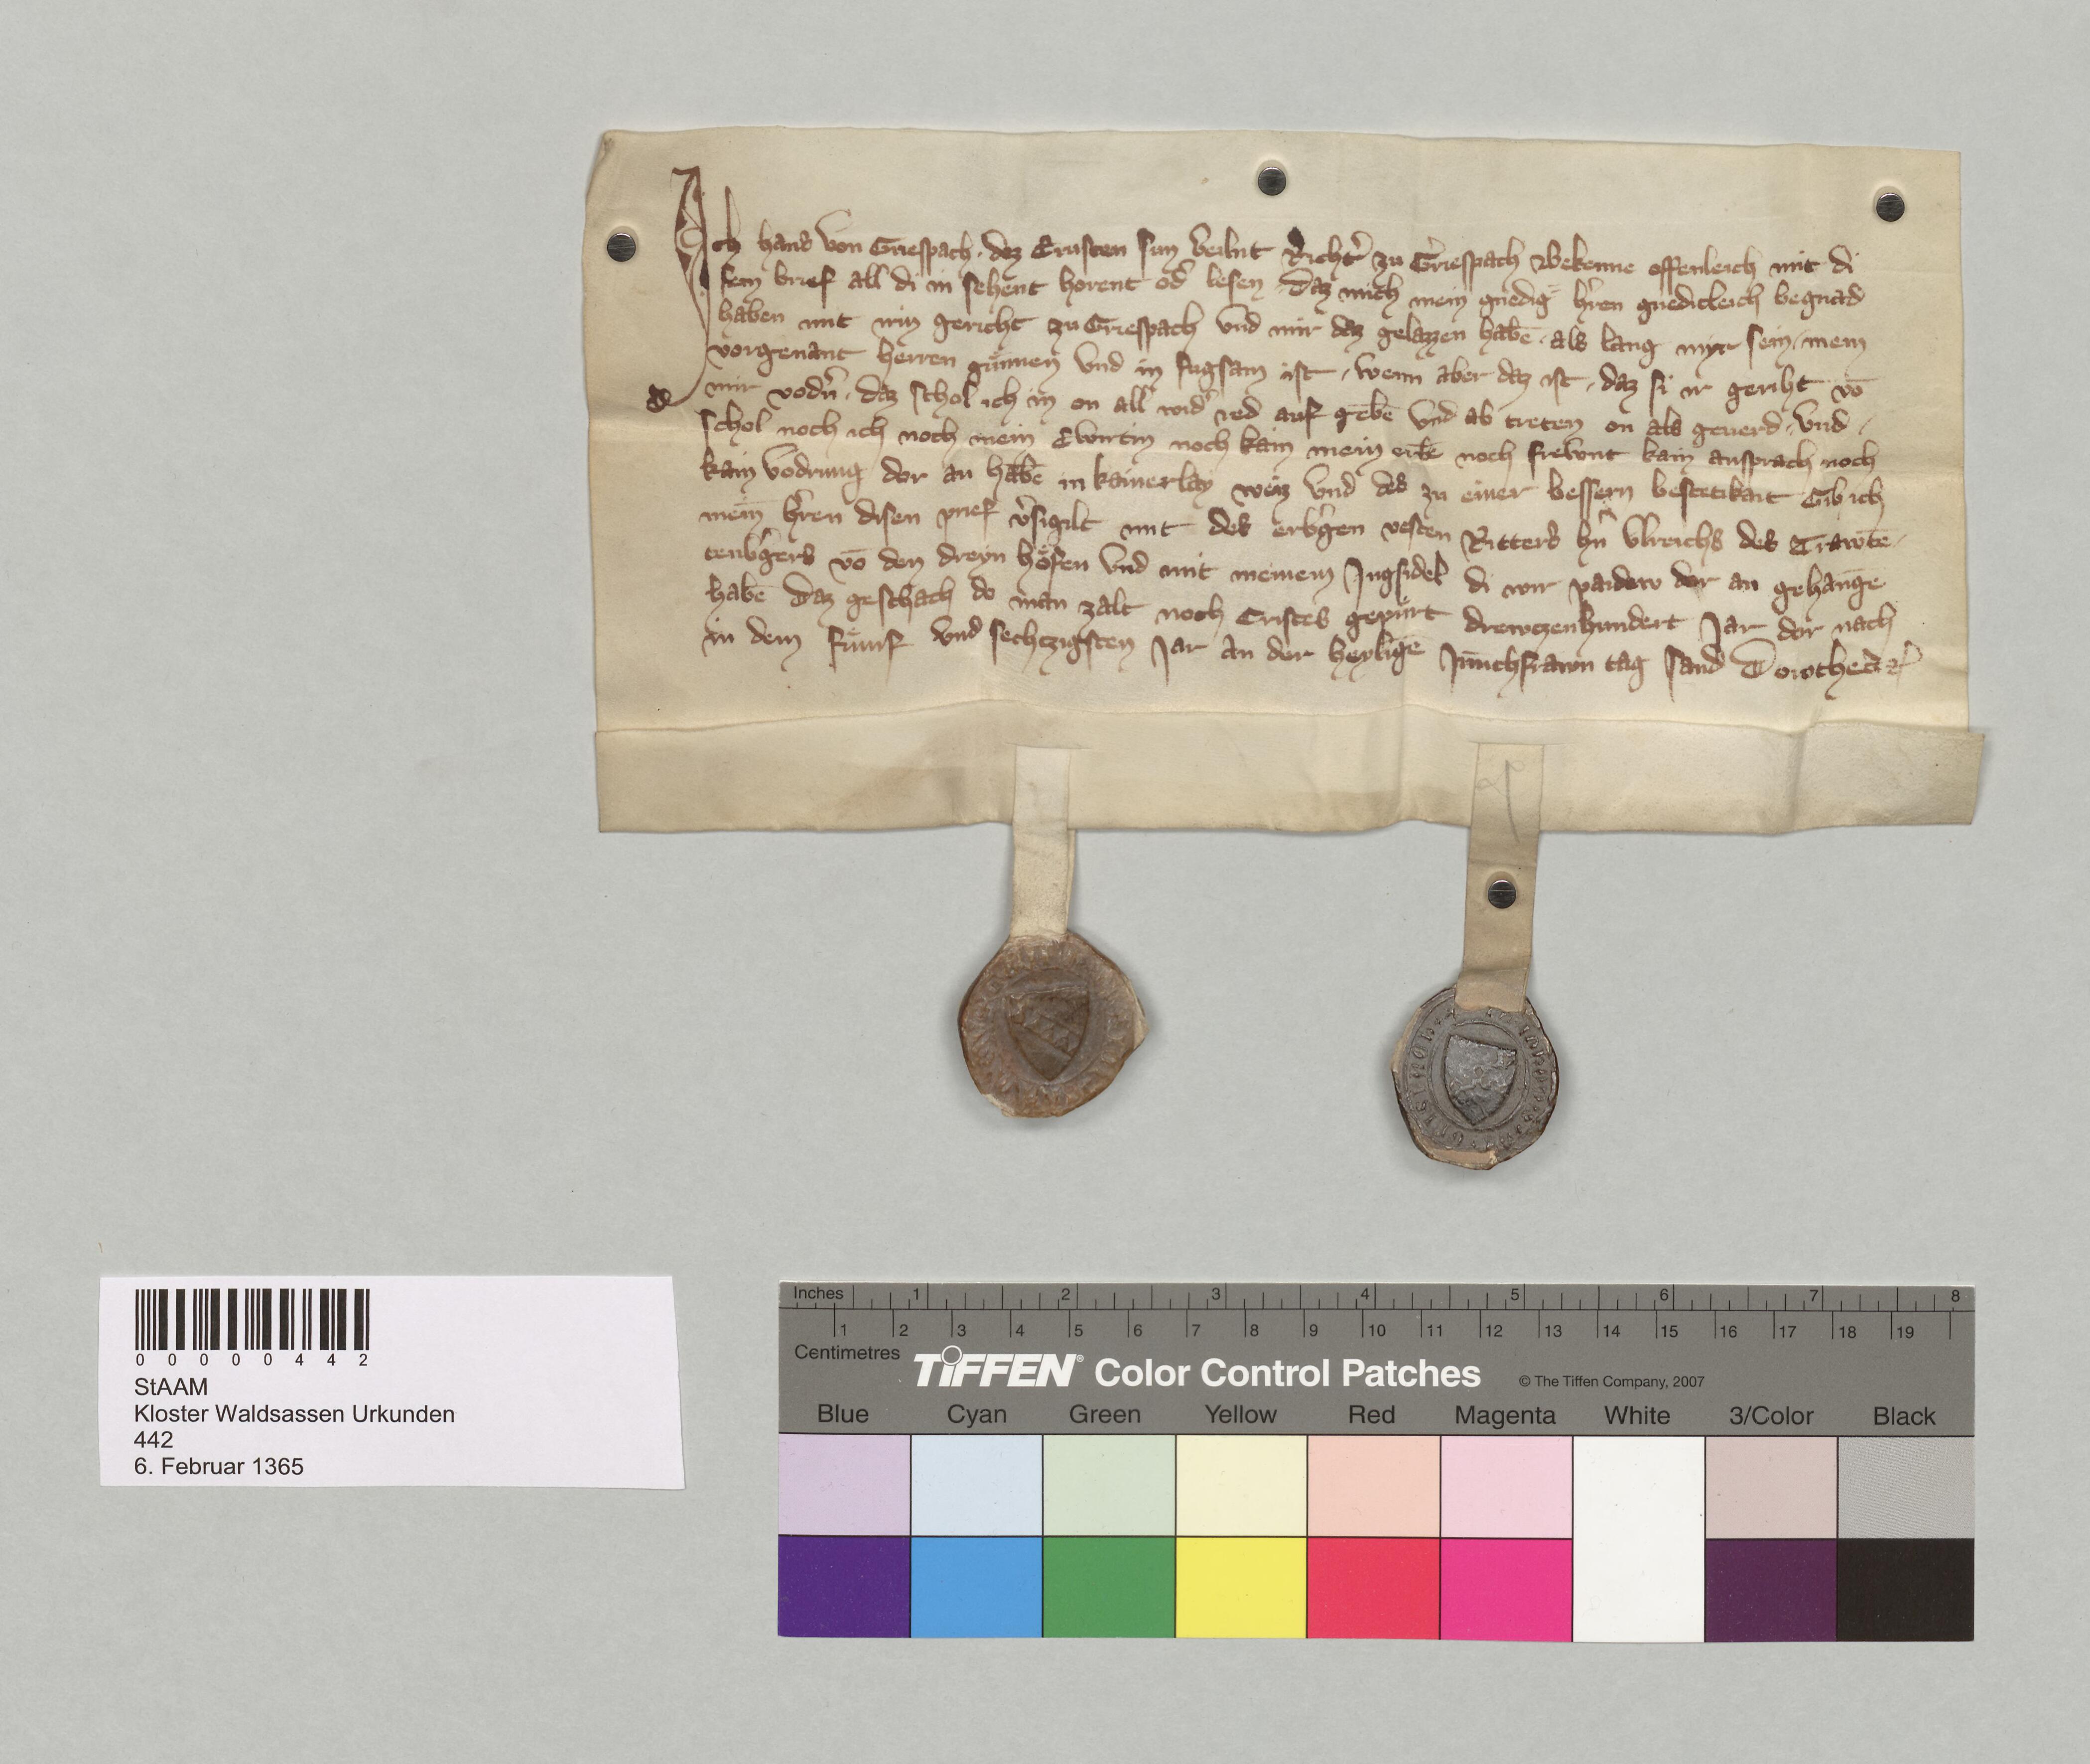 Ich hans von Griespach dez Ernsten sun veilnt Richter zu Griespach vbekenne offenleich mit di
sem brief all di in sehent horent od lesen daz mich mein gnedig hren gnedicleich begnad
haben mit irm gericht zu Griespach vnd mir daz gelazzen habē als lang mir sein mein
vorgenant herren günnen vnd in fugsam ist wenn aber daz ist daz si ir geriht vō
mir vodn daz schol ich in on all wid red auf gebē vnd ab treten on als geuerd vnd
schol noch ich noch mein Ewirtin noch kain mein erbē noch frewnt kain ansprach noch
kain vodrung dar an habē in kainerlay weiz vnd des zu einer bessern bestetikait Gib ich
mein hren disen prief vsigilt mit des erbgen vesten Ritters hn Vlreichs des Trawtē
tenbgers vō den dreyn höfen vnd mit meinem Jngsidel di wir paidew dar an gehangē
habē Daz geschach do man zalt noch Cristes gepürt drewczenhundert Jar dar nach
in dem fünf vnd sechczigsten Jar an der heyligē Junchfrawn tag sand Dorothee
0 0 0 0 0 4 4 2
StAAM
Kloster Waldsassen Urkunden
442
6. Februar 1365
Inches 1 2 3 4 5 6 7 8
1 2 3 4 5 6 7 8 9 10 11 12 13 14 15 16 17 18 19
Centimetres
TIFFEN® Color Control Patches © The Tiffen Company, 2007
Blue Cyan Green Yellow Red Magenta White 3/Color Black